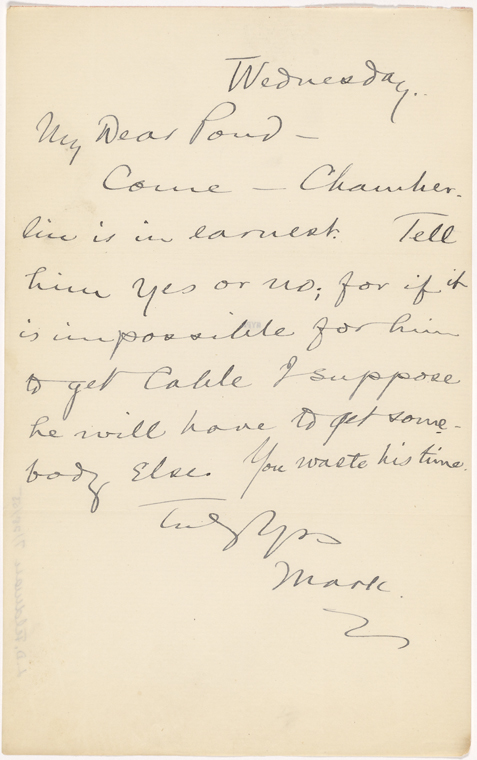 Wednesday.
My Dear Pond —
Come — Chamber-
lin is in earnest. Tell
him yes or no; for if it
is impossible for him
to get Cable I suppose
he will have to get some-
body else. You waste his time.
Truly Yrs
Mark.